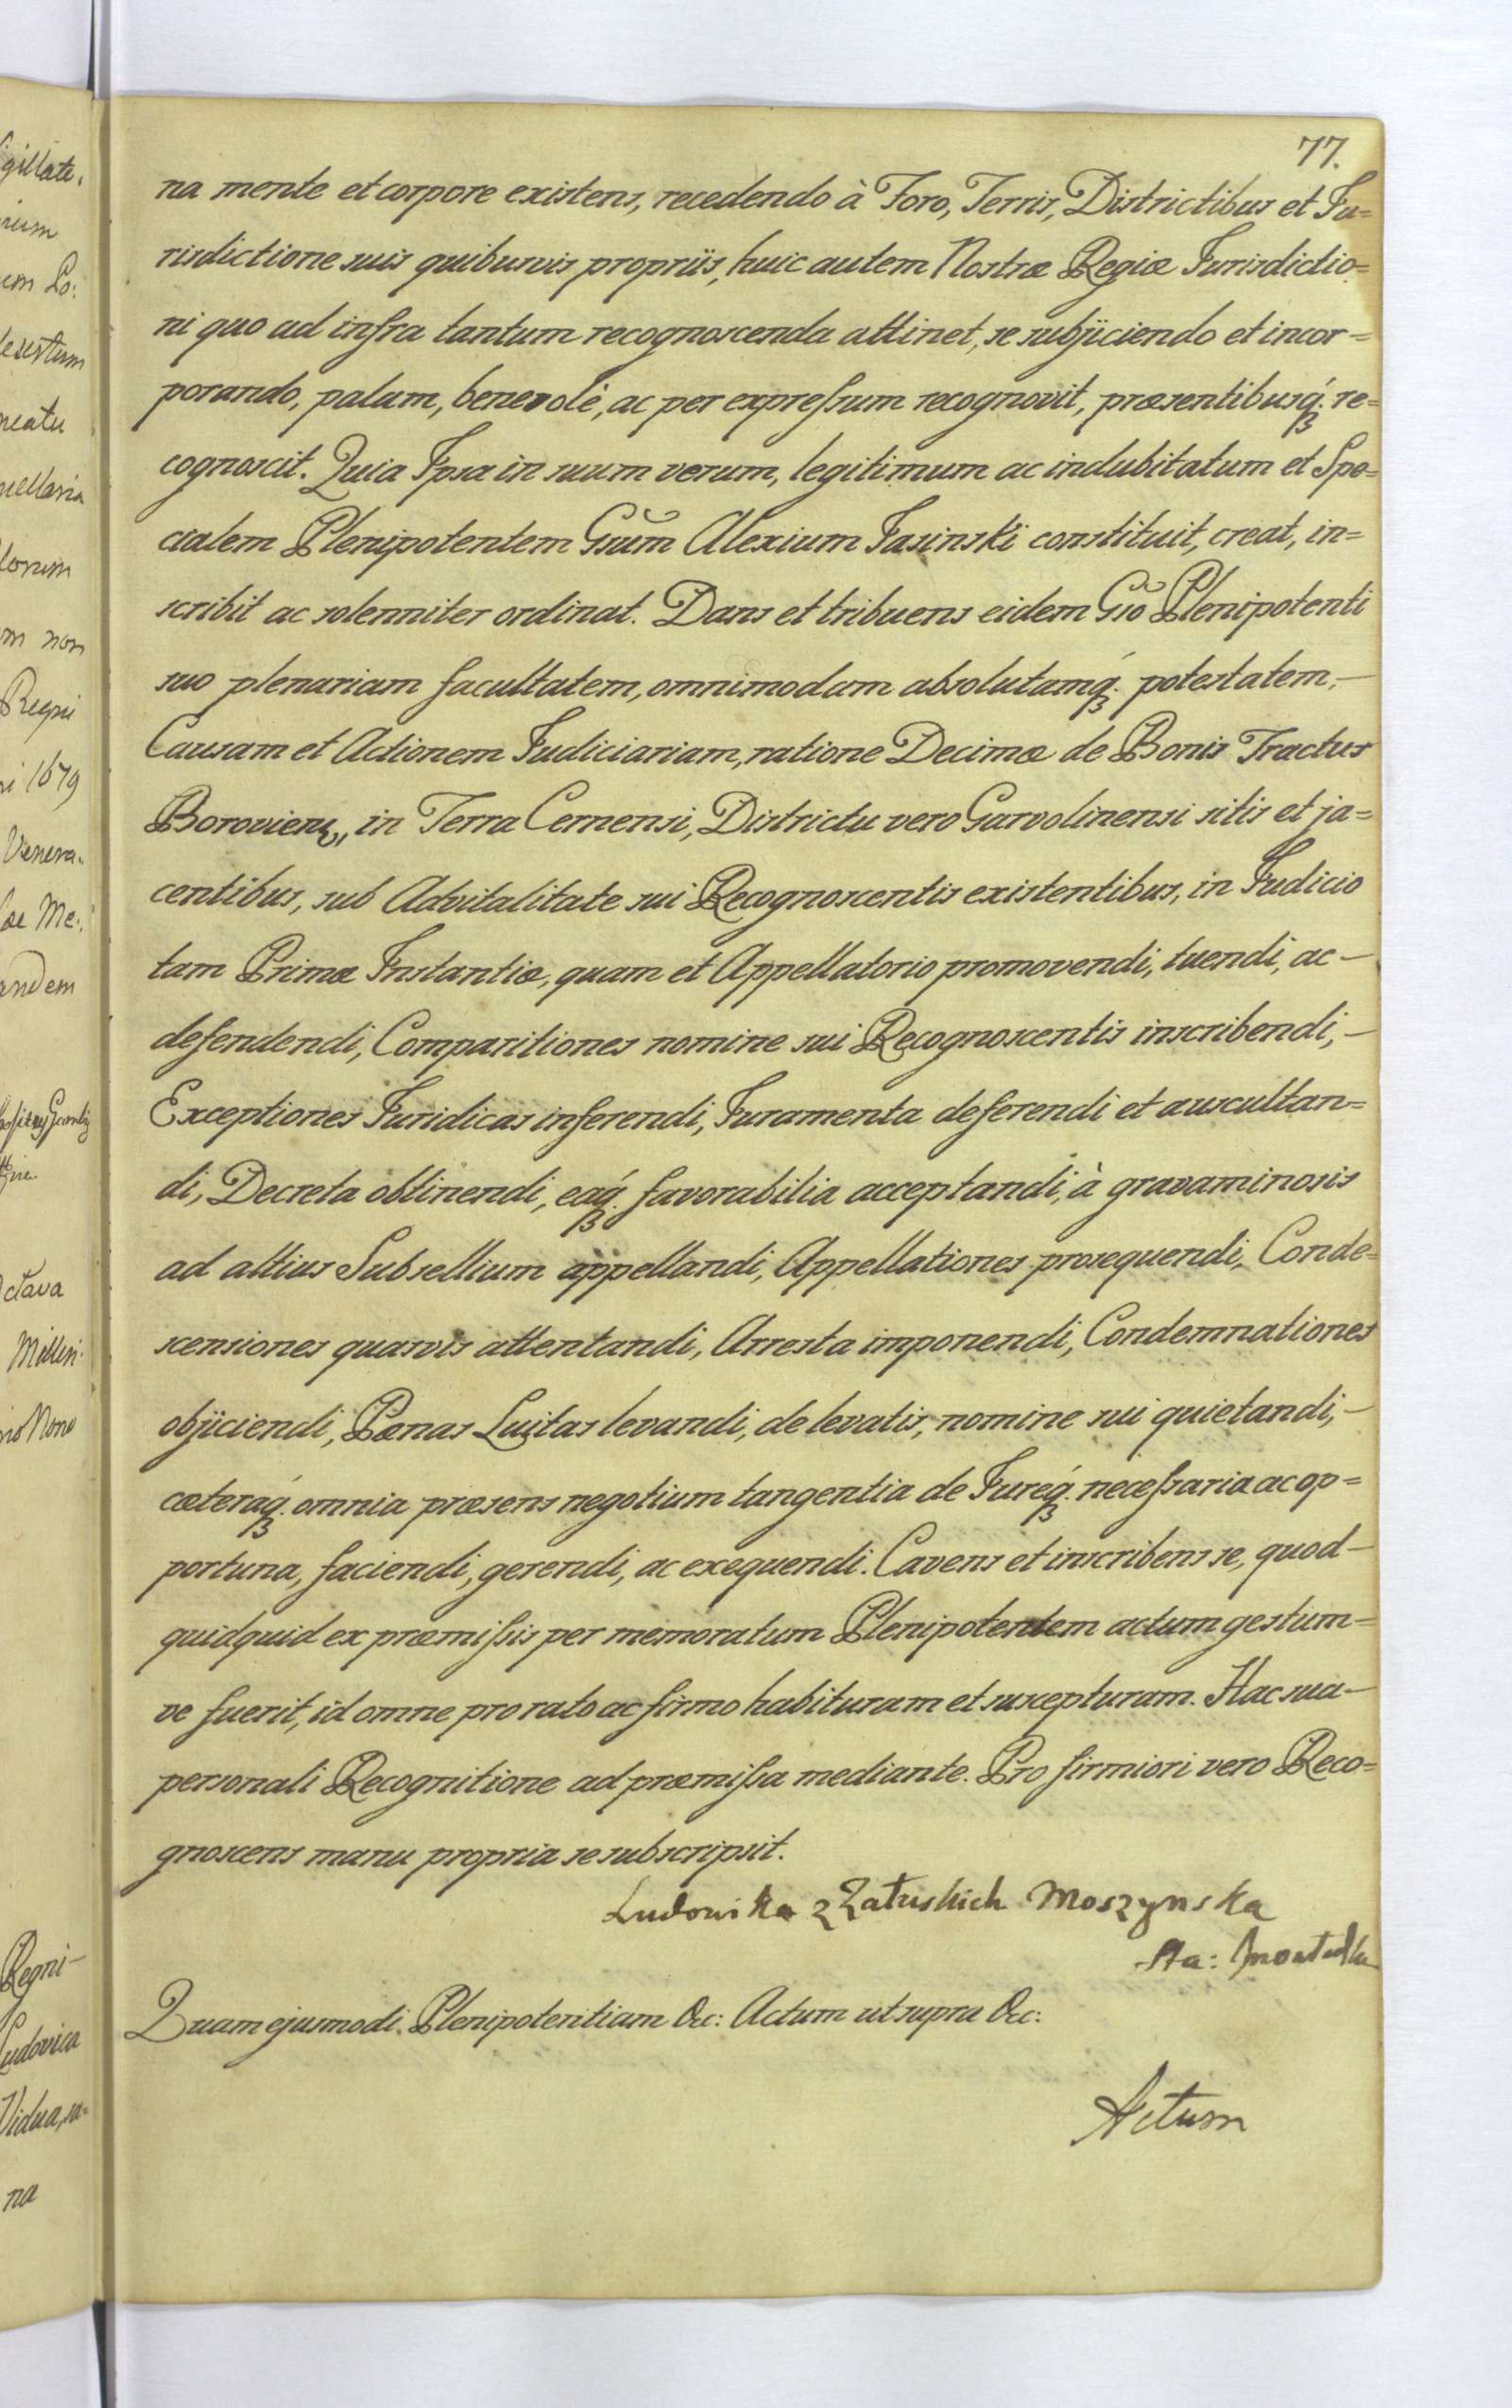 77.
na mente et corpore existens, recedendo à Foro, Terris, Districtibus et Ju=
risdictione suis quibusvis propriis, huic autem Nostræ Regiæ Jurisdictio=
ni quo ad infra tantum recognoscenda attinet, se subjiciendo et incor=
porando, palam, benevolè, ac per expreſsum recognovit, præsentibusq́; re=
cognoscit. Quia Ipsa in suum verum, legitimum ac indubitatum et Spe=
cialem Plenipotentem Gsũm Alexium Jasinski constituit, creat, in=
scribit ac solenniter ordinat. Dans et tribuens eidem Gsõ Plenipotenti
suo plenariam facultatem, omnimodam absolutamq́; potestatem,—
Causam et Actionem Judiciariam, ratione Decimæ de Bonis Tractus
Boroviens„ in Terra Cernensi, Districtu vero Garvolinensi sitis et ja=
centibus, sub Advitalitate sui Recognoscentis existentibus, in Judicio
tam Primæ Instantiæ, quam et Appellatorio promovendi, tuendi, ac—
defendendi, Comparitiones nomine sui Recognoscentis inscribendi,—
Exceptiones Juridicas inferendi, Juramenta deferendi et auscultan=
di, Decreta obtinendi, eaq́; favorabilia acceptandi, à gravaminosis
ad altius Subsellium appellandi, Appellationes prosequendi, Conde=
scensiones quasvis attentandi, Arresta imponendi, Condemnationes
objiciendi, Pænas Luitas levandi, de levatis, nomine sui quietandi,—
cæteraq́; omnia præsens negotium tangentia de Jureq́; neceſsaria ac op=
portuna, faciendi, gerendi, ac exequendi. Cavens et inscribens se, quod—
quidquid ex præmiſsis per memoratum Plenipotentem actum gestum=
ve fuerit, id omne pro rato ac firmo habituram et suscepturam. Hac sua—
personali Recognitione ad præmiſsa mediante. Pro firmiori vero Reco=
gnoscens manu propria se subscripsit.
Ludowika z Załuskich Moszynska
Quam ejusmodi Plenipotentiam &c: Actum ut supra &c:
Actum